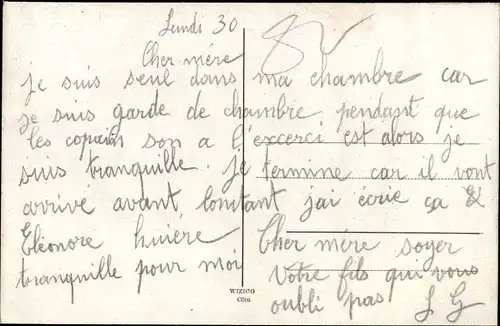 Lundi 30
Cher mére
je suis seul dans ma chambre car
je suis garde de chambre pendant que
les copain son a l'excerci est alors je
suis tranquille. je termine car il vont
arrivé avant, lonstant j'ai écrie ça &
Eléonore huiere
tranquille pour moi
Cher mére soyer
votre fils qui vous
oubli pas L G
WIZICO
Côln.